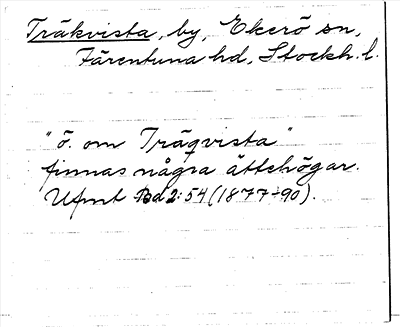 Träkvista, by, Ekerö sn,
Färentuna hd, Stockh. l.
"ö. om Träqvista"
finnas några ättehögar.
Ufmt Bd 2:54 (1877-90).